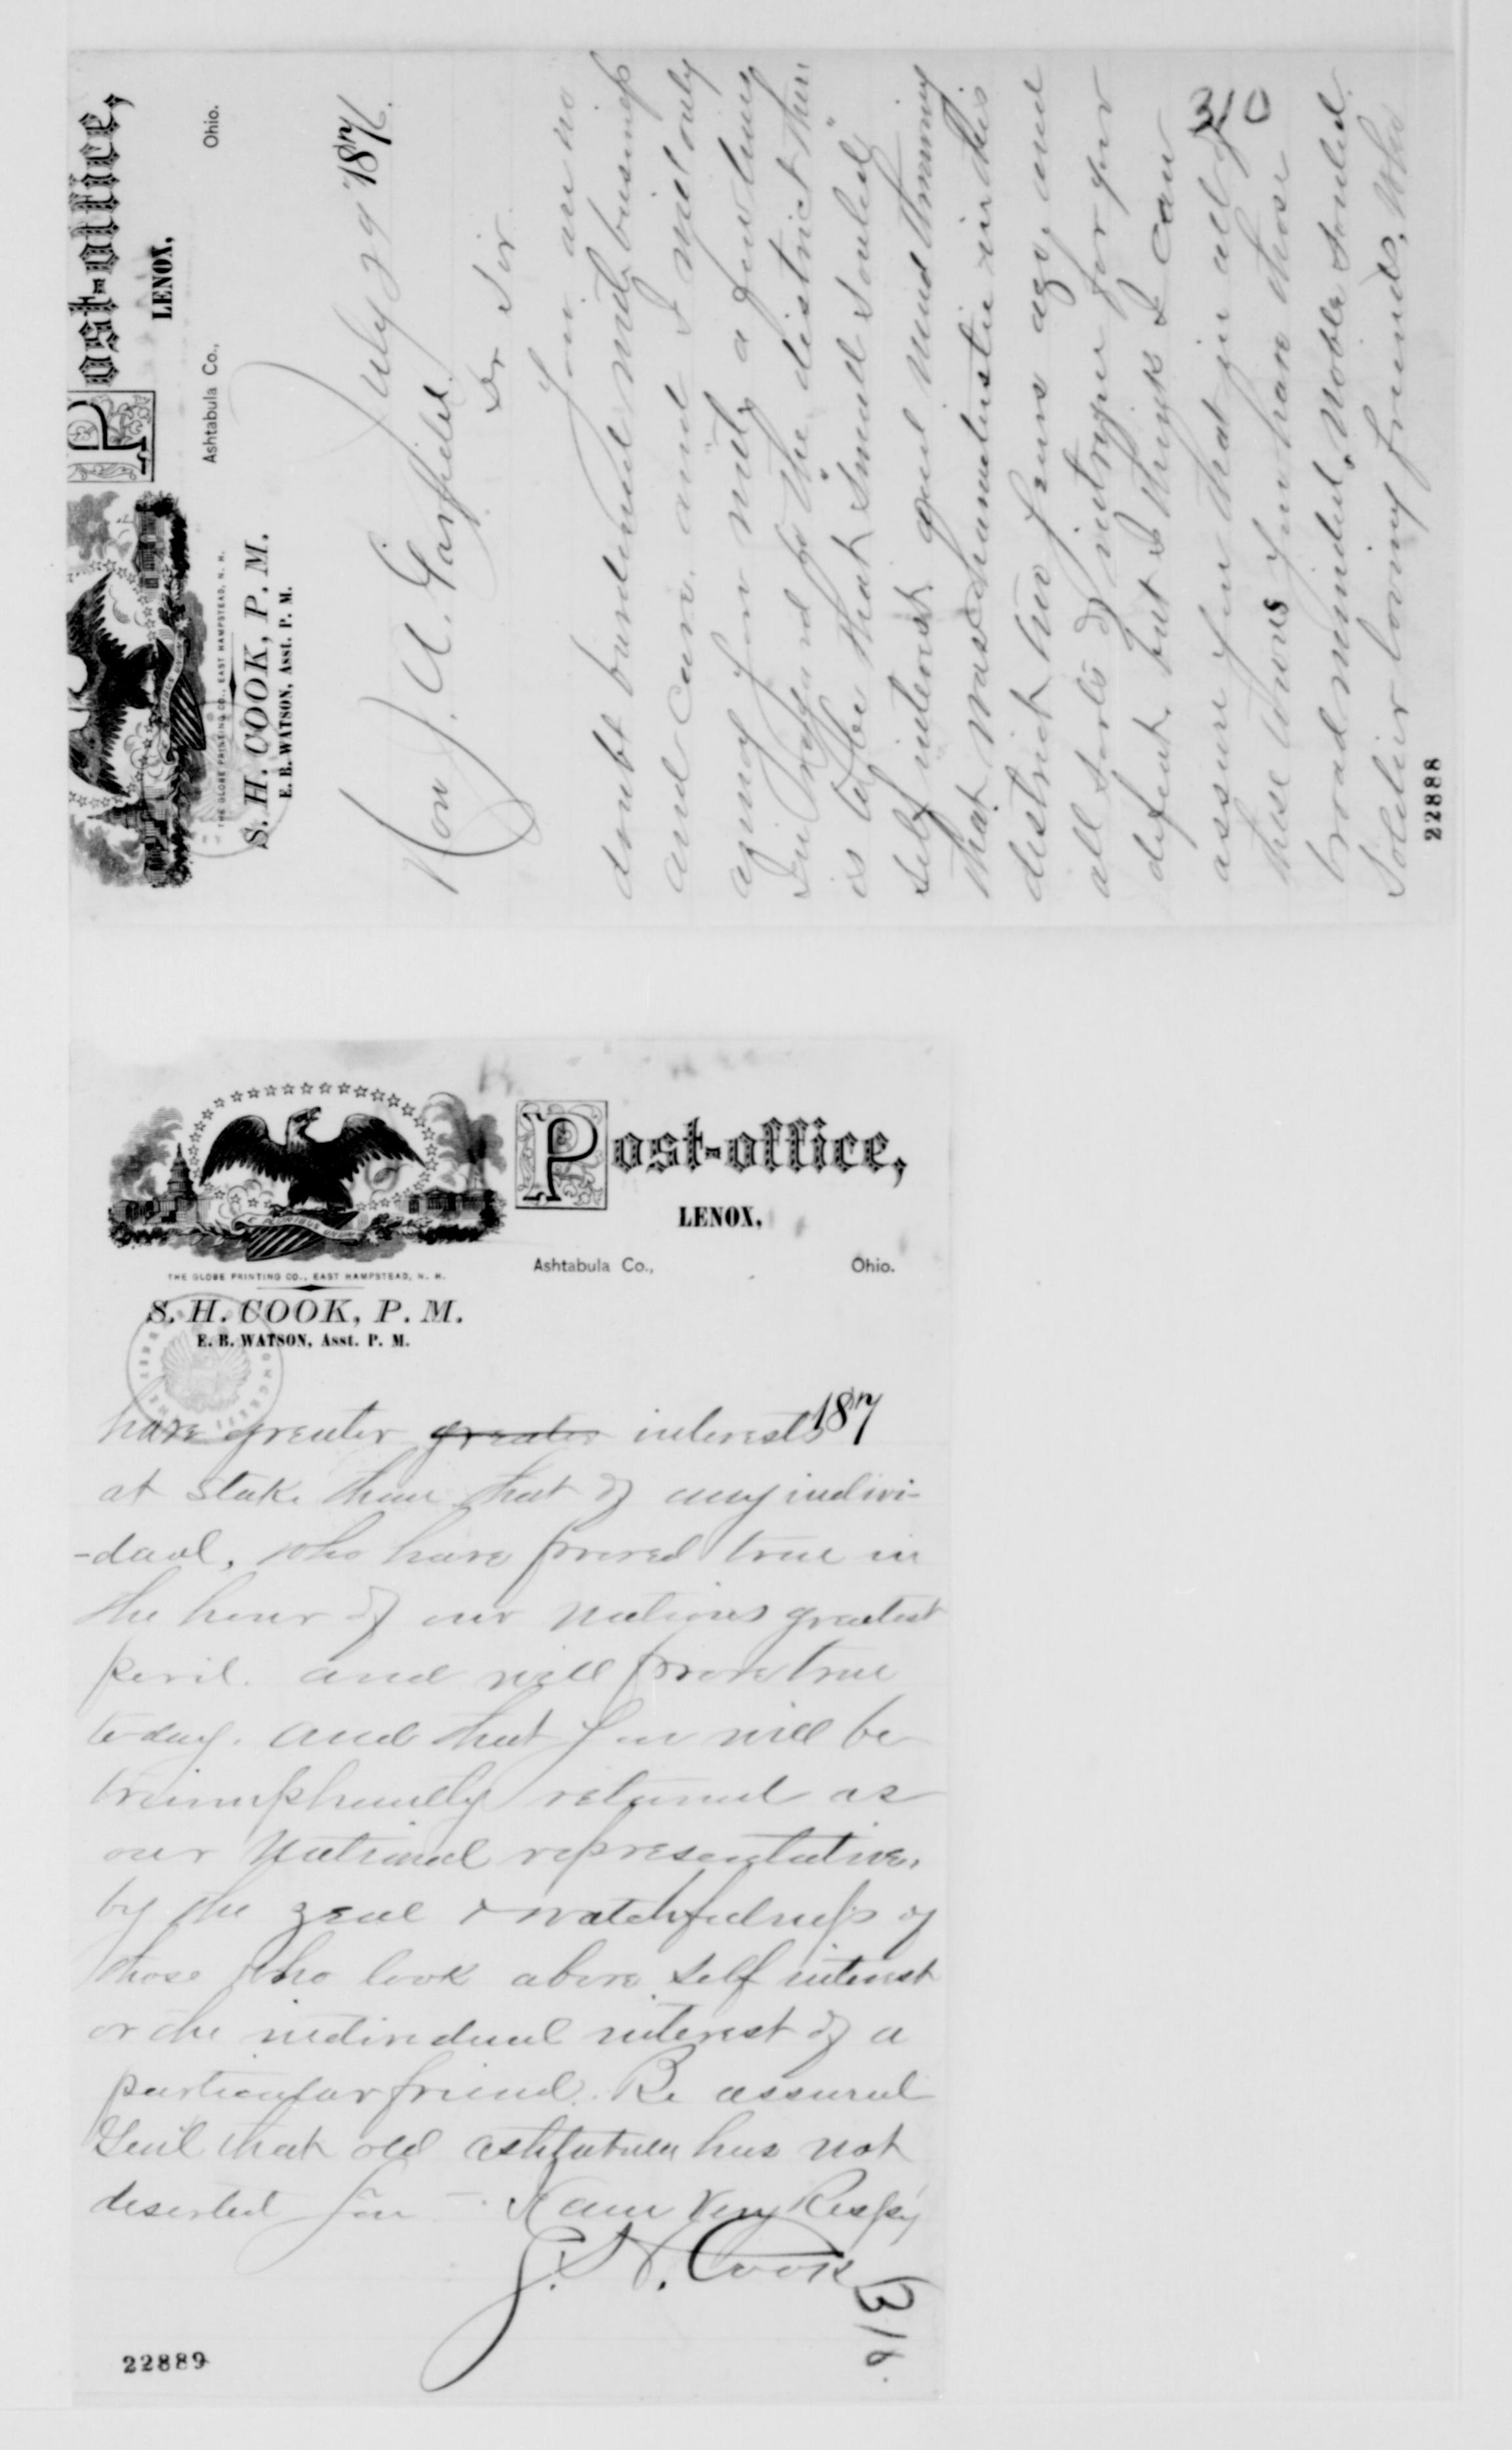 Post-office,
LENOX,
Ashtabula Co., Ohio.
THE GLOBE PRINTING CO., EAST HAMPSTEAD, N. H.
S. H. COOK, P. M.
E. B. WATSON, Asst. P. M.
July 29 1876.
Hon J. A. Garfield.
Dr Sir.
You are no
doubt burdened with business
and care, and I will only
annoy you with a few lines
In regard to the district. There
is to be that "small souled"
self interest and
that was characteristic in this
district two years ago, and
all sorts of intrigue for your
defeat, but I think I can
assure you that in all of
310
these towns you have those
broad minded, noble souled
Soldier loving friends, who
22888
Post-office,
LENOX,
Ashtabula Co., Ohio.
GLORIOUS UNION
THE GLOBE PRINTING CO., EAST HAMPSTEAD, N. H.
S. H. COOK, P. M.
E. B. WATSON, Asst. P. M.
187
have greater greater interests
at stake than that of any indivi-
-dual, who have proved true in
the hour of our nations greatest
peril. and will prove true
to-day. and that you will be
triumphantly returned as
our National representative,
by the zeal & watchfulness of
those who look above self interest
or the individual interest of a
particular friend. Be assured
Genl that old ashtabula has not
deserted you - I am Very Respy
S. H. Cook
316
22889